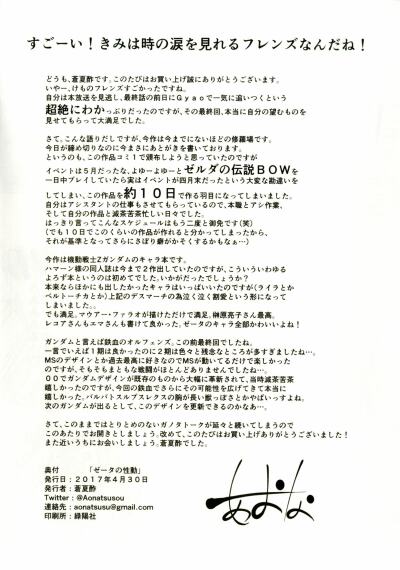 すごーい！きみは時の涙を見れるフレンズなんだね！
どうも、蒼夏酢です。このたびはお買い上げ誠にありがとうございます。
いやー、けものフレンズすごかったですね。
自分は本放送を見逃し、最終話の前日にＧｙａｏで一気に追いつくという
超絶にわかっぷりだったのですが、その最終回、本当に自分の望むものを
見せてもらって大満足でした。
さて、こんな語りだしですが、今作は今までにないほどの修羅場です。
今日が締め切りなのに今まさにあとがきを書いております。
というのも、この作品コミ１で頒布しようと思っていたのですが
イベントは５月だったな、よゆーよゆーとゼルダの伝説ＢＯＷを
一日中プレイしていたら実はイベントが四月末だったという大変な勘違いを
してしまい、この作品を約１０日で作る羽目になってしまいました。
自分はアシスタントの仕事もさせてもらっているので、本職とアシ作業、
そして自分の作品と滅茶苦茶忙しい日々でした。
はっきり言ってこんなスケジュールはもう二度と御免です（笑）
（でも１０日でこのくらいの作品が作れると分かってしまったから、
それが基準となってさらにさぼり癖がかそくするかもなぁ…）
今作は機動戦士Ｚガンダムのキャラ本です。
ハマーン様の同人誌は今まで２作出していたのですが、こういういわゆる
よろず本というのは初めてでした。いかがだったでしょうか？
本来ならほかにも出したかったキャラはいっぱいいたのですが（ライラとか
ベルトーチカとか）上記のデスマーチの為泣く泣く割愛という形になって
しまいました。。
でも満足。マウアー・ファラオが描けただけで満足。榊原亮子さん最高。
レコアさんもエマさんも書けて良かった。ゼータのキャラ全部かわいいよね！
ガンダムと言えば鉄血のオルフェンズ、この前最終回でしたね。
一言でいえば１期は良かったのに２期は色々と残念なところが多すぎましたね…。
ＭＳのデザインとか過去最高に好きなのでＭＳが動いてるだけで楽しかった
のですが、そもそもまともな戦闘がほとんどありませんでしたね…。
００でガンダムデザインが既存のものから大幅に革新されて、当時滅茶苦茶
嬉しかったのですが、今回の鉄血でさらにその可能性を広げてきて本当に
嬉しかった。バルバトスルプスレクスの腕が長い獣っぽさとかやばいっすよね。
次のガンダムが出るとして、このデザインを更新できるのかなぁ…。
さて、このままではとりとめのないガノタトークが延々と続いてしまうので
このあたりでお開きとしましょう。改めて、このたびはお買い上げありがとうございました！
また近いうちにお会いしましょう。でわでわ！
奥付　「ゼータの性動」
発行日：２０１７年４月３０日
発行者：蒼夏酢
Twitter：@Aonatsusou
連絡先：aonatsusu@gmail.com
印刷所：緑陽社